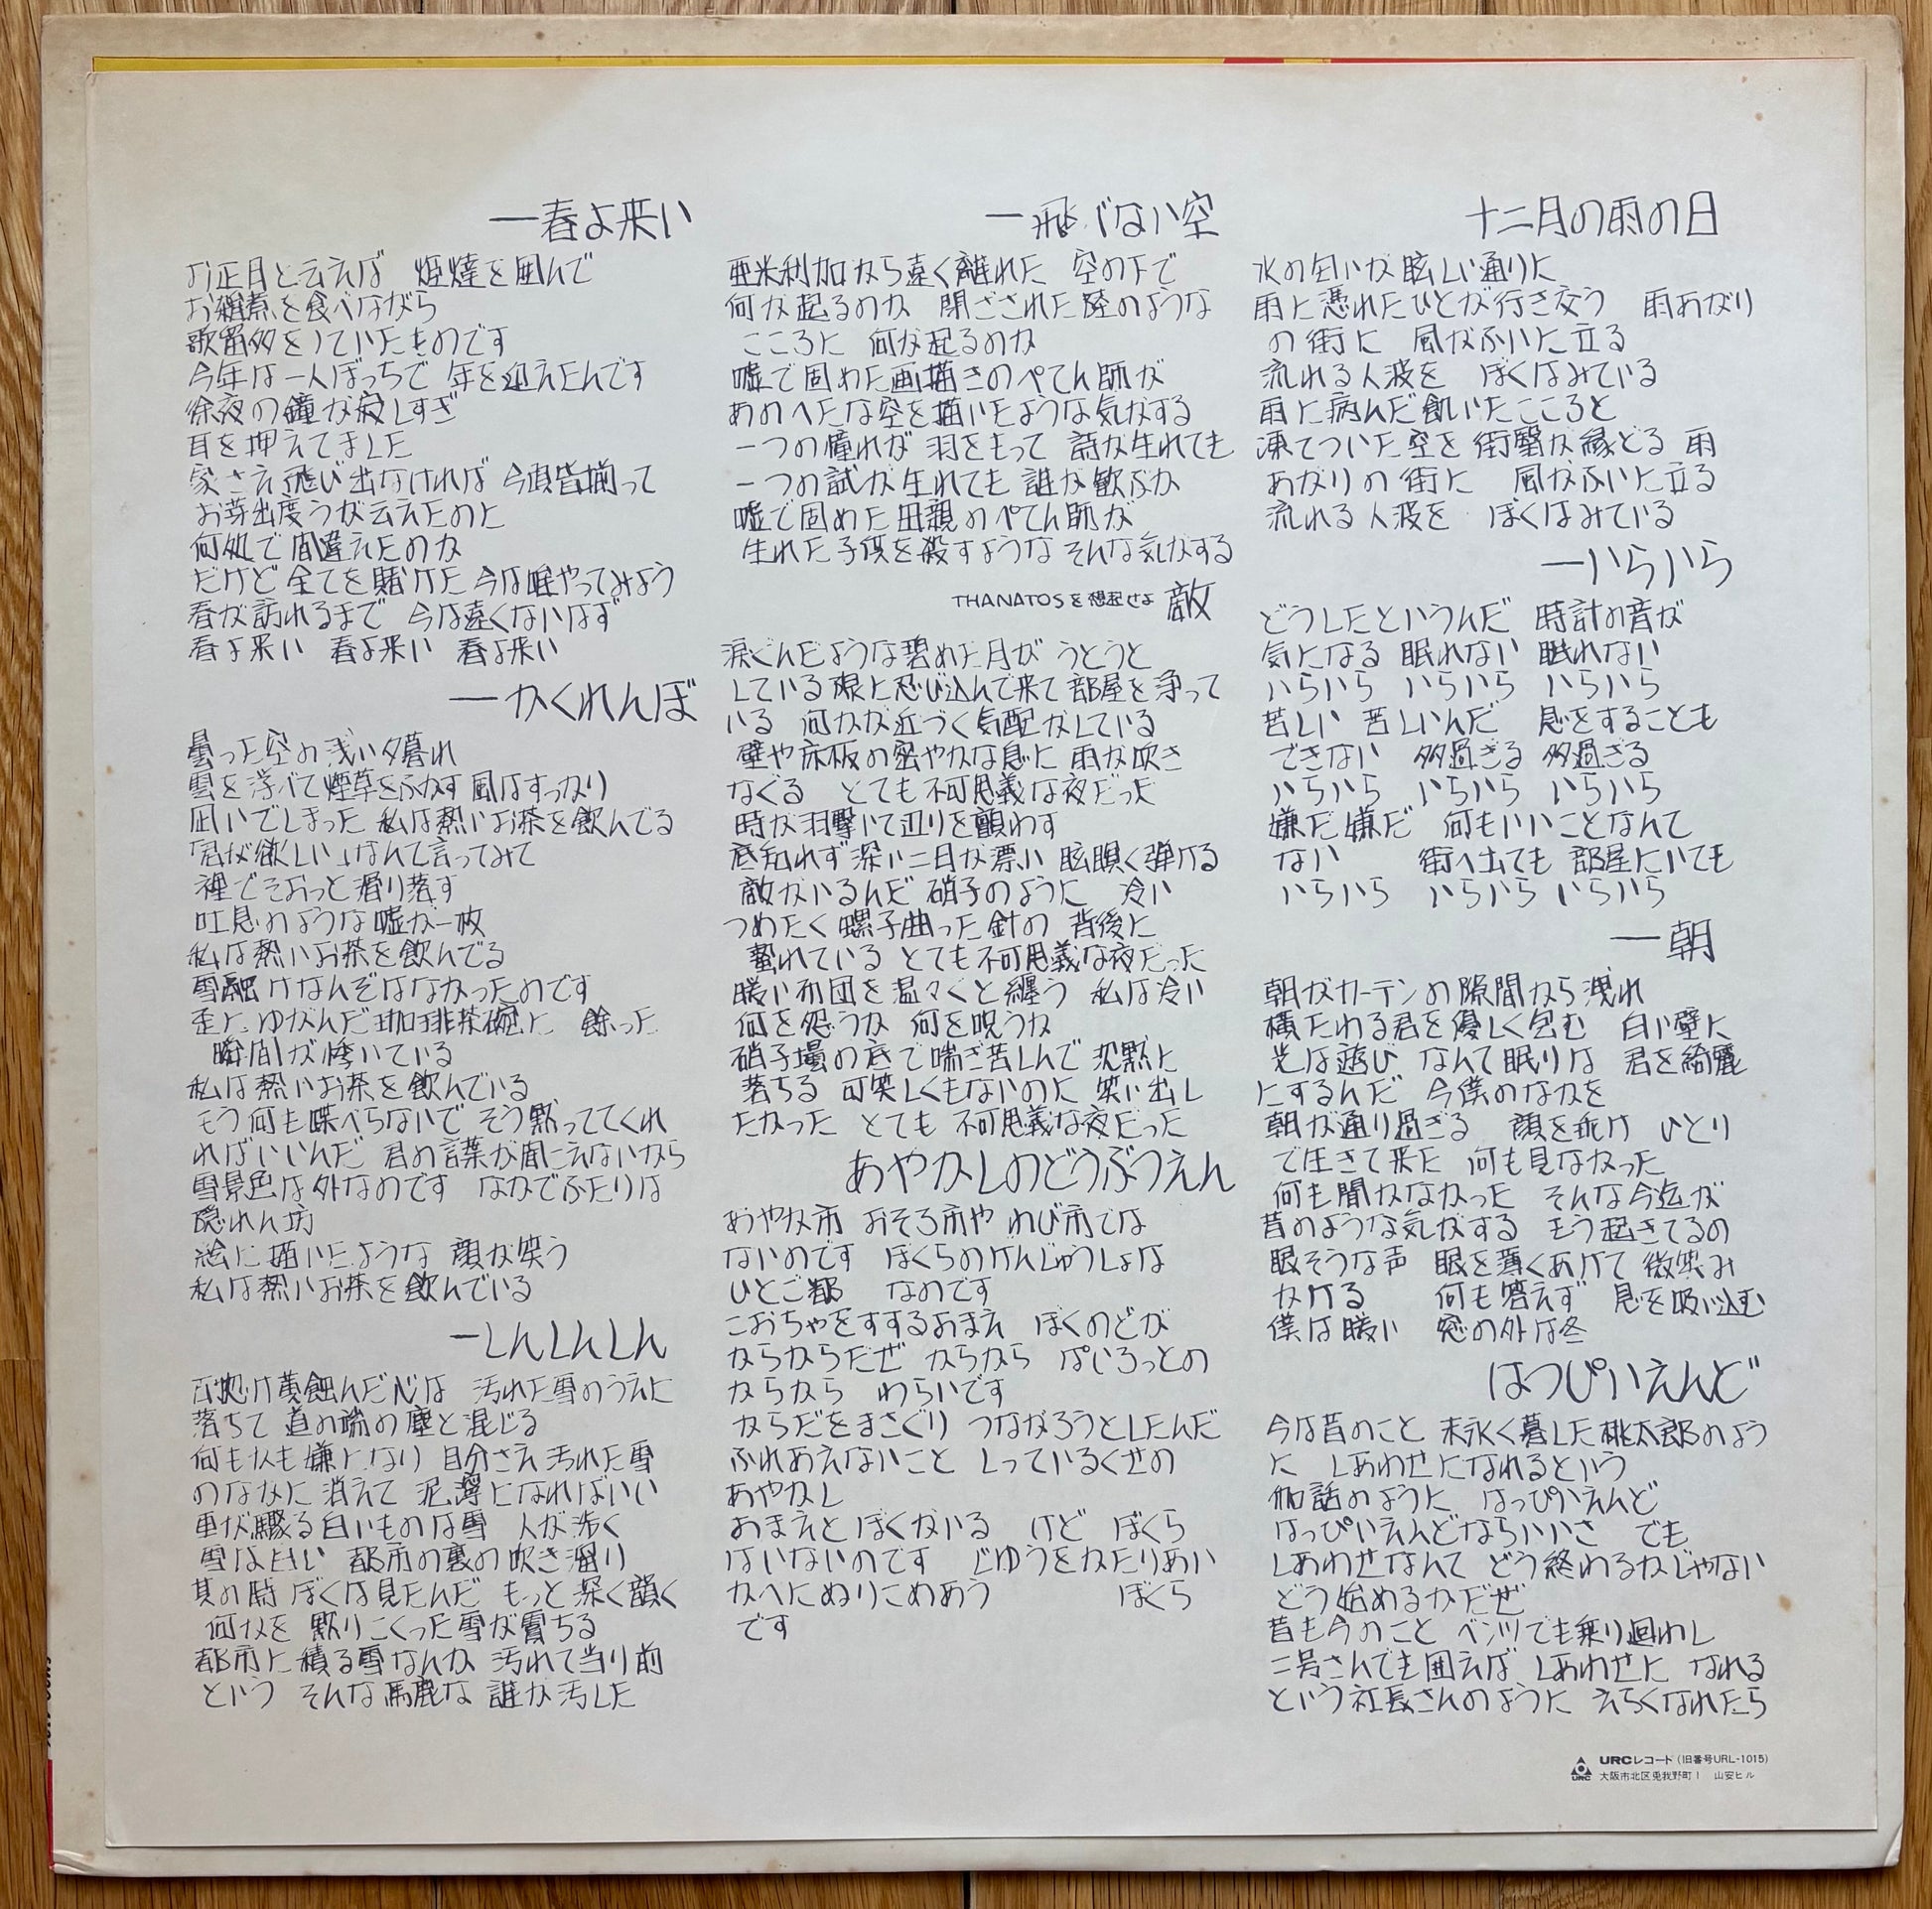 ―春よ来い
お正月と云えば 炬燵を囲んで
お雑煮を食べながら
歌留多をしていたものです
今年は一人ぼっちで 年を迎えたんです
除夜の鐘が寂しすぎ
耳を押えてました
家さえ飛び出なければ 今頃皆揃って
お芽出度うが云えたのに
何処で間違えたのか
だけど全てを賭けた 今は唯やってみよう
春が訪れるまで 今は遠くないはず
春よ来い 春よ来い 春よ来い
―かくれんぼ
曇った空の浅い夕暮れ
雲を浮べて煙草をふかす 風はすっかり
凪いでしまった 私は熱いお茶を飲んでる
「君が欲しい」なんて言ってみて
裡でそおっと滑り落す
吐息のような嘘が一枚
私は熱いお茶を飲んでる
雪融けなんぞはなかったのです
歪にゆがんだ珈琲茶碗に 餘った
瞬間が悸いている
私は熱いお茶を飲んでいる
もう何も喋べらないで そう黙っててくれ
ればいいんだ 君の言葉が聞こえないから
雪景色は外なのです なかでふたりは
隠れん坊
絵に描いたような 顔が笑う
私は熱いお茶を飲んでいる
―しんしんしん
黄蝕んだ心は 汚れた雪のうえに
落ちて 道の端の塵と混じる
何もかも嫌になり 自分さえ汚れた雪
のなかに消えて 泥濘になればいい
車が轢る白いものは雪 人が歩く
雪は白い 都市の裏の吹き溜り
其の時 ぼくは見たんだ もっと深く韻く
何かを 黙りこくった雪が雪ちる
都市に積る雪なんか 汚れて当り前
という そんな馬鹿な 誰が汚した
―飛べない空
亜米利加から遠く離れた 空の下で
何が起るのか 閉ざされた陸のような
こころに 何が起るのか
嘘で固めた画描きのぺてん師が
あのへたな空を描いたような気がする
一つの憧れが 羽をもって 詩が生れても
一つの試が生れても 誰が歓ぶか
嘘で固めた母親のぺてん師が
生れた子供を殺すような そんな気がする
THANATOSを想起せよ 敵
涙ぐんだような碧めた月が うとうと
している隙に忍び込んで来て 部屋を浄って
いる 何かが近づく気配がしている
壁や床板の密やかな息に 雨が吹き
なぐる とても不可思議な夜だった
時が羽撃いて辺りを顫わす
底知れず深い二月が漂い 眩瞑く弾ける
敵がいるんだ 硝子のように 冷い
つめたく螺子曲った針の 背後に
蟄れている とても不可思議な夜だった
暖い布団を温々ぐと纏う 私は冷い
何を怨うか 何を呪うか
硝子場の底で喘ぎ苦しんで 沈黙に
落ちる 可笑しくもないのに 笑い出し
たかった とても 不可思議な夜だった
あやかしのどうぶつえん
あやか市 おそろ市や わび市では
ないのです ぼくらのげんじゅうしょは
ひとご都 なのです
こおちゃをすするおまえ ぼくのどが
からからだぜ からから ぱいろっとの
からから わらいです
からだをまさぐり つながろうとしたんだ
ふれあえないこと しっているくせの
あやかし
おまえと ぼくがいる けど ぼくら
はいないのです じゆうをかたりあい
かべにぬりこめあう ぼくら
です
十二月の雨の日
水の匂いが眩しい通りに
雨に憑れたひとが行き交う 雨あがり
の街に 風がふいに立る
流れる人波を ぼくはみている
雨に病んだ飢いたこころと
凍てついた空を 街翳が縁どる 雨
あがりの街に 風がふいに立る
流れる人波を ぼくはみている
―いらいら
どうしたというんだ 時計の音が
気になる 眠れない 眠れない
いらいら いらいら いらいら
苦しい 苦しいんだ 息をすることも
できない 多過ぎる 多過ぎる
いらいら いらいら いらいら
嫌だ嫌だ 何もいいことなんて
ない 街へ出ても 部屋にいても
いらいら いらいら いらいら
―朝
朝がカーテンの隙間から洩れ
横たわる君を優しく包む 白い壁に
光は遊び なんて眠りは 君を綺麗
にするんだ 今僕のなかを
朝が通り過ぎる 顔を赤け ひとり
で生きて来た 何も見なかった
何も聞かなかった そんな今迄が
昔のような気がする もう起きてるの
眠そうな声 眼を薄くあけて 微笑み
かける 何も答えず 息を吸い込む
僕は暖い 窓の外は冬
はっぴいえんど
今は昔のこと 末永く暮した桃太郎のよう
に しあわせになれるという
伽話のように はっぴいえんど
はっぴいえんどならいいさ でも
しあわせなんて どう終わるかじゃない
どう始めるかだぜ
昔も今のこと ベンツでも乗り廻わし
二号さんでも囲えば しあわせに なれる
という社長さんのように えらくなれたら
URC URCレコード (旧番号URL-1015)
大阪市北区兎我野町1 山安ビル